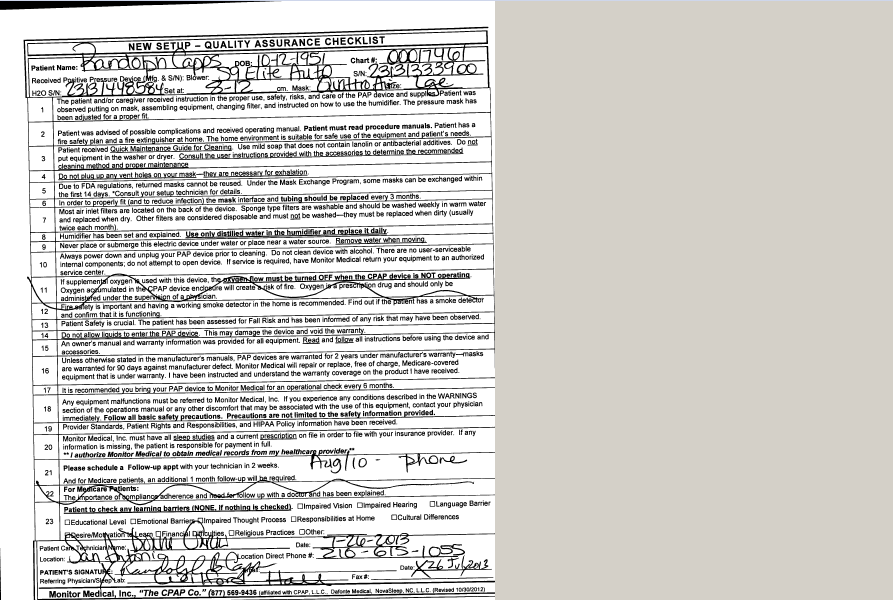 NEW SETUP – QUALITY ASSURANCE CHECKLIST
Patient Name: Randolph Capps DOB: 10-12-1951 Chart#: 00017461
Received Positive Pressure Device (Mfg. & S/N): Blower: S9 Elite Auto S/N: 23131333900
H2O S/N: 23131448584 Set at: 8-12 cm. Mask: Size: Lge
1 The patient and/or caregiver received instruction in the proper use, safety, risks, and care of the PAP device and supplies. Patient was
observed putting on mask, assembling equipment, changing filter, and instructed on how to use the humidifier. The pressure mask has
been adjusted for a proper fit.
2 Patient was advised of possible complications and received operating manual. Patient must read procedure manuals. Patient has a
fire safety plan and a fire extinguisher at home. The home environment is suitable for safe use of the equipment and patient's needs.
3 Patient received Quick Maintenance Guide for Cleaning. Use mild soap that does not contain lanolin or antibacterial additives. Do not
put equipment in the washer or dryer. Consult the user instructions provided with the accessories to determine the recommended
cleaning method and proper maintenance
4 Do not plug up any vent holes on your mask—they are necessary for exhalation.
5 Due to FDA regulations, returned masks cannot be reused. Under the Mask Exchange Program, some masks can be exchanged within
the first 14 days. *Consult your setup technician for details.
6 In order to properly fit (and to reduce infection) the mask interface and tubing should be replaced every 3 months.
7 Most air inlet filters are located on the back of the device. Sponge type filters are washable and should be washed weekly in warm water
and replaced when dry. Other filters are considered disposable and must not be washed—they must be replaced when dirty (usually
twice each month).
8 Humidifier has been set and explained. Use only distilled water in the humidifier and replace it daily.
9 Never place or submerge this electric device under water or place near a water source. Remove water when moving.
10 Always power down and unplug your PAP device prior to cleaning. Do not clean device with alcohol. There are no user-serviceable
internal components; do not attempt to open device. If service is required, have Monitor Medical return your equipment to an authorized
service center.
11 If supplemental oxygen is used with this device, the oxygen flow must be turned OFF when the CPAP device is NOT operating.
Oxygen accumulated in the CPAP device enclosure will create a risk of fire. Oxygen is a prescription drug and should only be
administered under the supervision of a physician.
12 Fire safety is important and having a working smoke detector in the home is recommended. Find out if the patient has a smoke detector
and confirm that it is functioning.
13 Patient Safety is crucial. The patient has been assessed for Fall Risk and has been informed of any risk that may have been observed.
14 Do not allow liquids to enter the PAP device. This may damage the device and void the warranty.
15 An owner's manual and warranty information was provided for all equipment. Read and follow all instructions before using the device and
accessories.
16 Unless otherwise stated in the manufacturer's manuals, PAP devices are warranted for 2 years under manufacturer's warranty—masks
are warranted for 90 days against manufacturer defect. Monitor Medical will repair or replace, free of charge, Medicare-covered
equipment that is under warranty. I have been instructed and understand the warranty coverage on the product I have received.
17 It is recommended you bring your PAP device to Monitor Medical for an operational check every 6 months.
18 Any equipment malfunctions must be referred to Monitor Medical, Inc. If you experience any conditions described in the WARNINGS
section of the operations manual or any other discomfort that may be associated with the use of this equipment, contact your physician
immediately. Follow all basic safety precautions. Precautions are not limited to the safety information provided.
19 Provider Standards, Patient Rights and Responsibilities, and HIPAA Policy information have been received.
20 Monitor Medical, Inc. must have all sleep studies and a current prescription on file in order to file with your insurance provider. If any
information is missing, the patient is responsible for payment in full.
** I authorize Monitor Medical to obtain medical records from my healthcare provider**
21 Please schedule a Follow-up appt with your technician in 2 weeks. Aug/10 - phone
And for Medicare patients, an additional 1 month follow-up will be required.
22 For Medicare Patients:
The importance of compliance adherence and need for follow up with a doctor and has been explained.
Patient to check any learning barriers (NONE, if nothing is checked). ☐Impaired Vision ☐Impaired Hearing ☐Language Barrier
23 ☐Educational Level ☐Emotional Barriers ☐Impaired Thought Process ☐Responsibilities at Home ☐Cultural Differences
☐Desire/Motivation to Learn ☐Financial Difficulties ☐Religious Practices ☐Other:
Patient Care Technician Name: Date: 7-26-2013
Location: San Antonio Location Direct Phone #: 210-615-1055
PATIENT'S SIGNATURE: Randolph Capps Date: X 26 Jul 2013
Referring Physician/Sleep Lab: Clifford Hall Fax#:
Monitor Medical, Inc., "The CPAP Co." (877) 569-9436 (affiliated with CPAP, L.L.C., Dafonte Medical, NovaSleep, NC, L.L.C. (Revised 10/30/2012)